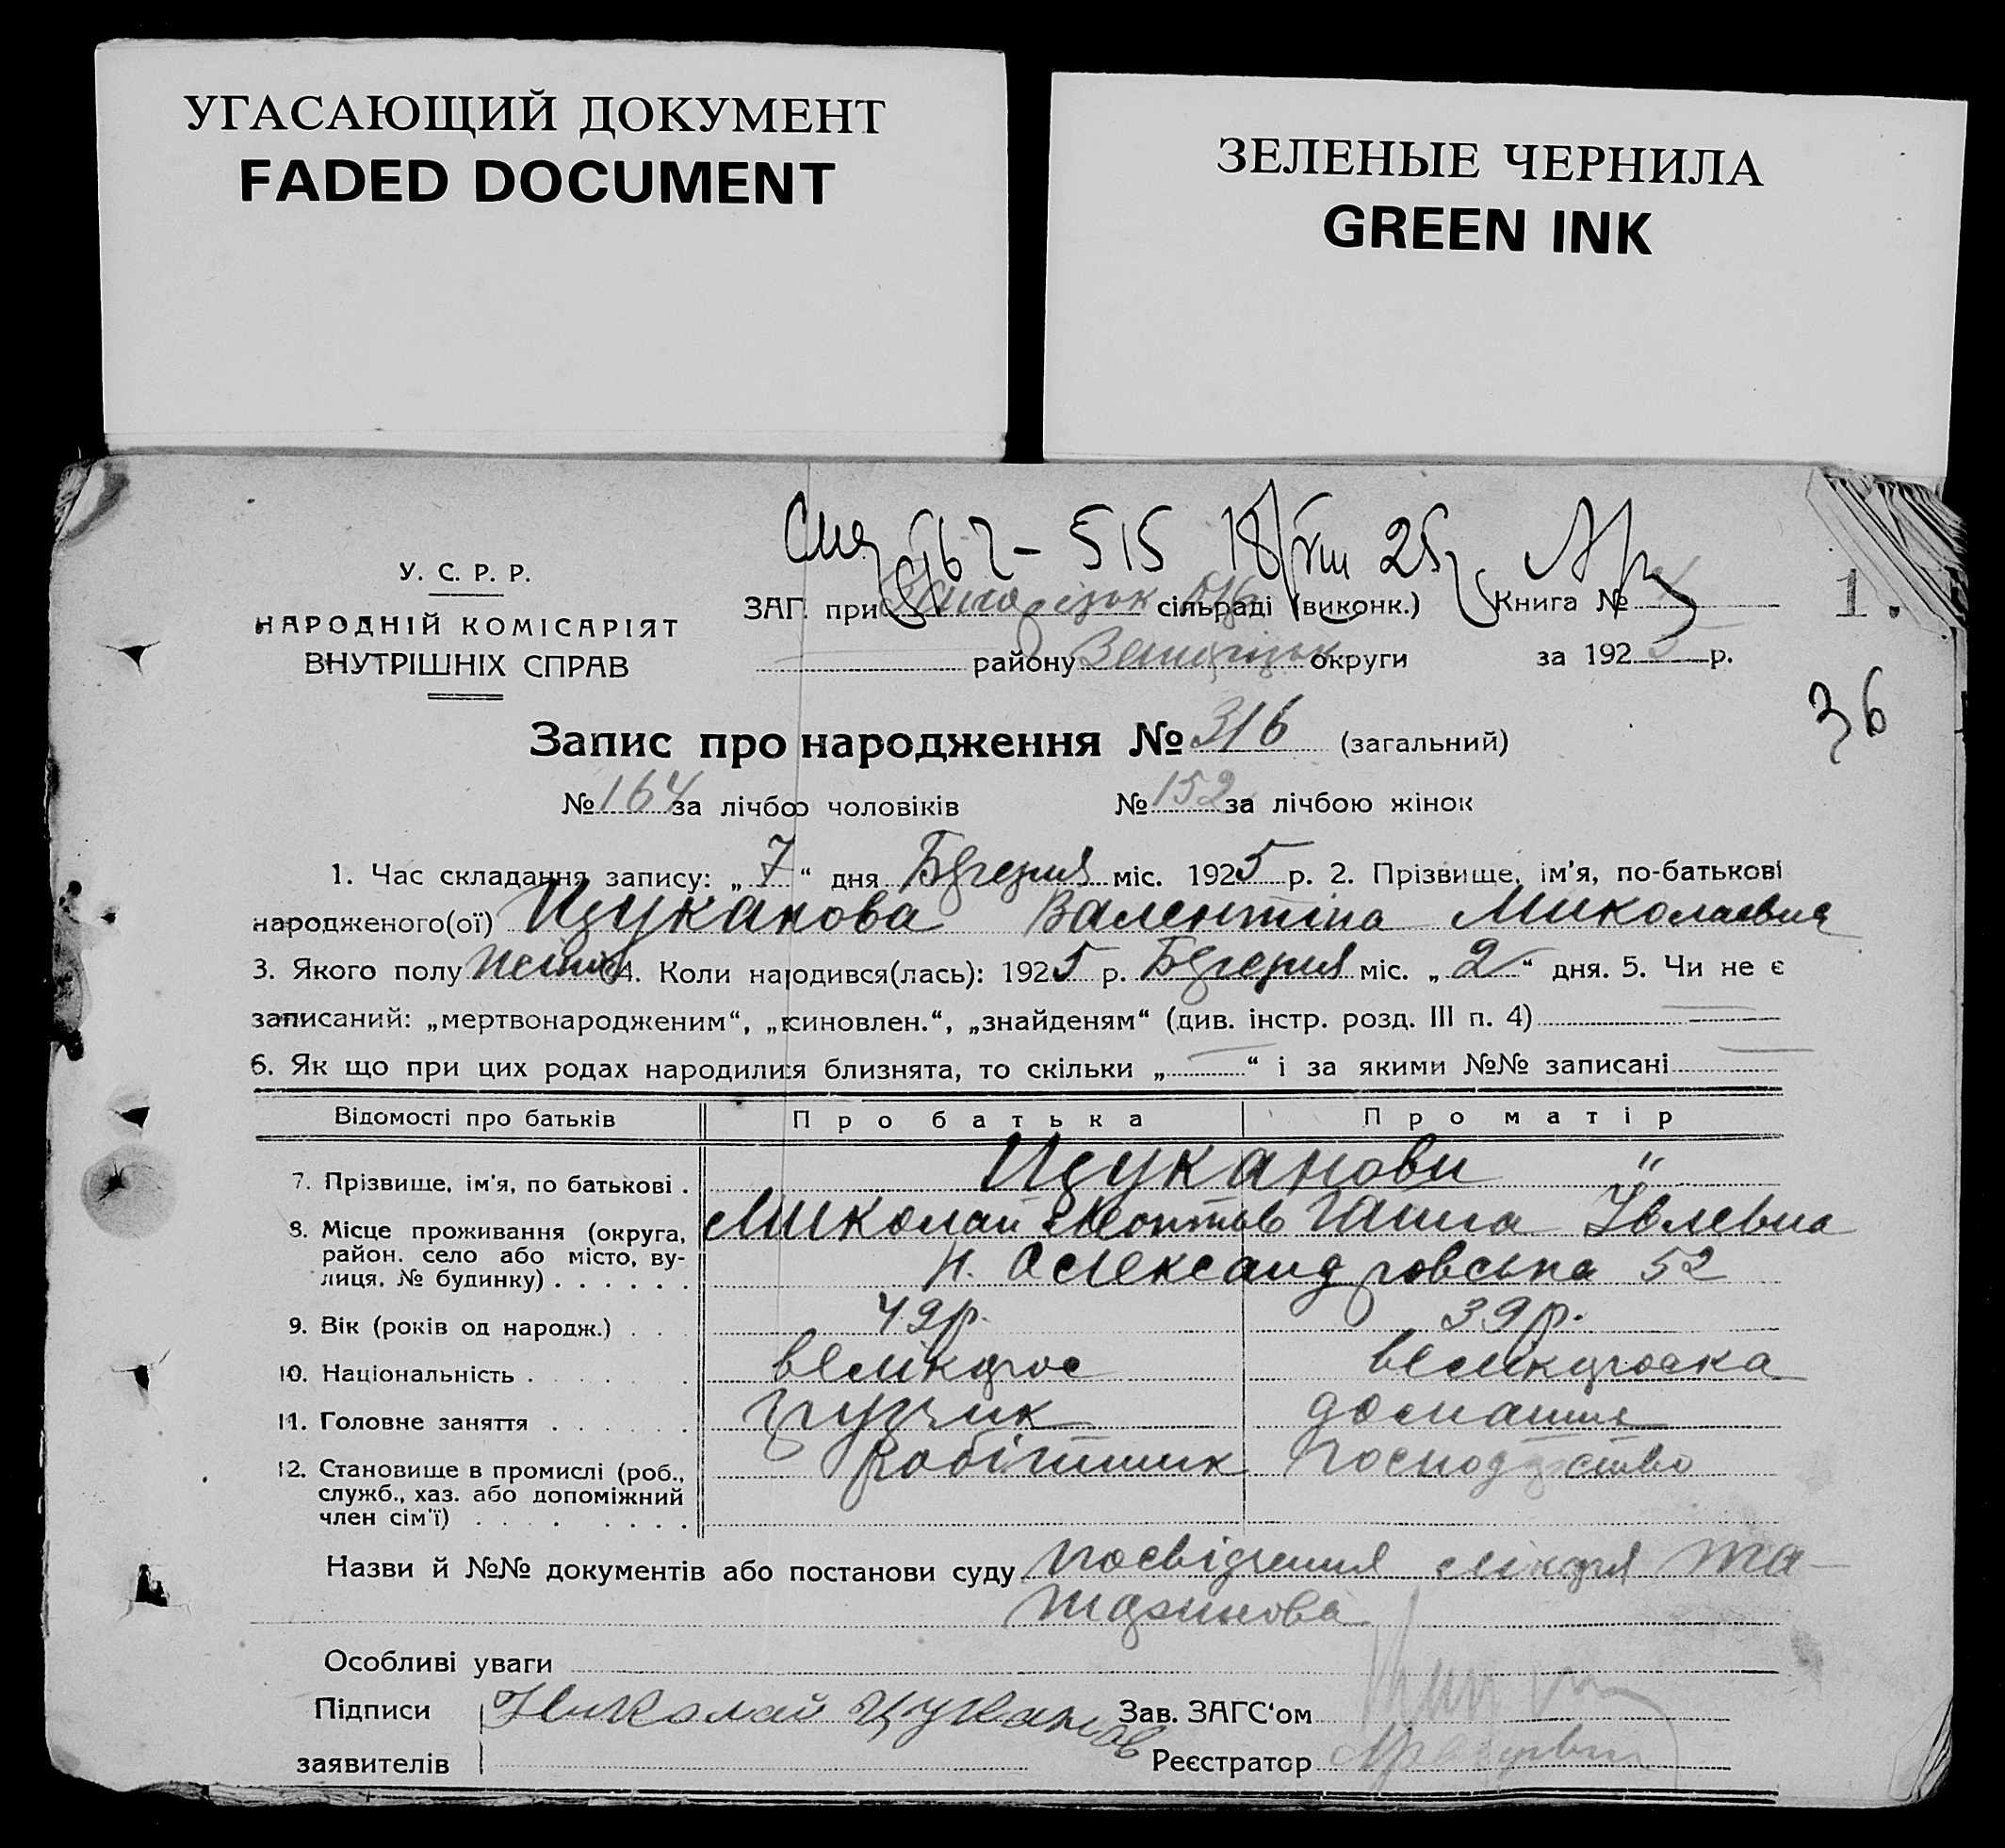 УГАСАЮЩИЙ ДОКУМЕНТ
FADED DOCUMENT
ЗЕЛЕНЫЕ ЧЕРНИЛА
GREEN INK
515 18/VIII 25
У. С. Р. Р.
НАРОДНІЙ КОМІСАРІЯТ
ВНУТРІШНІХ СПРАВ
ЗАГ. при сільраді (виконк.) Книга №
1.
району округи за 1925 р.
36
Запис про народження № 316 (загальний)
№ 164 за лічбою чоловіків № 152 за лічбою жінок
1. Час складання запису: „ 7 “ дня Березня міс. 1925 р. 2. Прізвище, ім'я, по-батькові
народженого(ої) Цуканова Валентіна Миколаевна
3. Якого полу 4. Коли народився(лась): 1925 р. Березня міс. „ 2 “ дня. 5. Чи не є
записаний: „мертвонародженим“, „всиновлен.“, „знайденям“ (див. інстр. розд. III п. 4)
6. Як що при цих родах народилися близнята, то скільки „ “ і за якими №№ записані
Відомості про батьків Про батька Про матір
7. Прізвище, ім'я, по батькові . Цуканови "
8. Місце проживання (округа, Миколай Ганна
район. село або місто, ву-
лиця, № будинку) . . . . . . Н. Олександровська 52
9. Вік (років од народж.) . . . 49р. 39р.
10. Національність . . . . . . великорос великороска
11. Головне заняття . . . . . . грузчик домашнє
12. Становище в промислі (роб., робітник господарство
служб., хаз. або допоміжний
член сім'ї) . . . . . . . .
Назви й №№ документів або постанови суду посвідчення лікаря Та-
Особливі уваги
Підписи Николай Цуканов Зав. ЗАГС'ом
заявителів Реєстратор